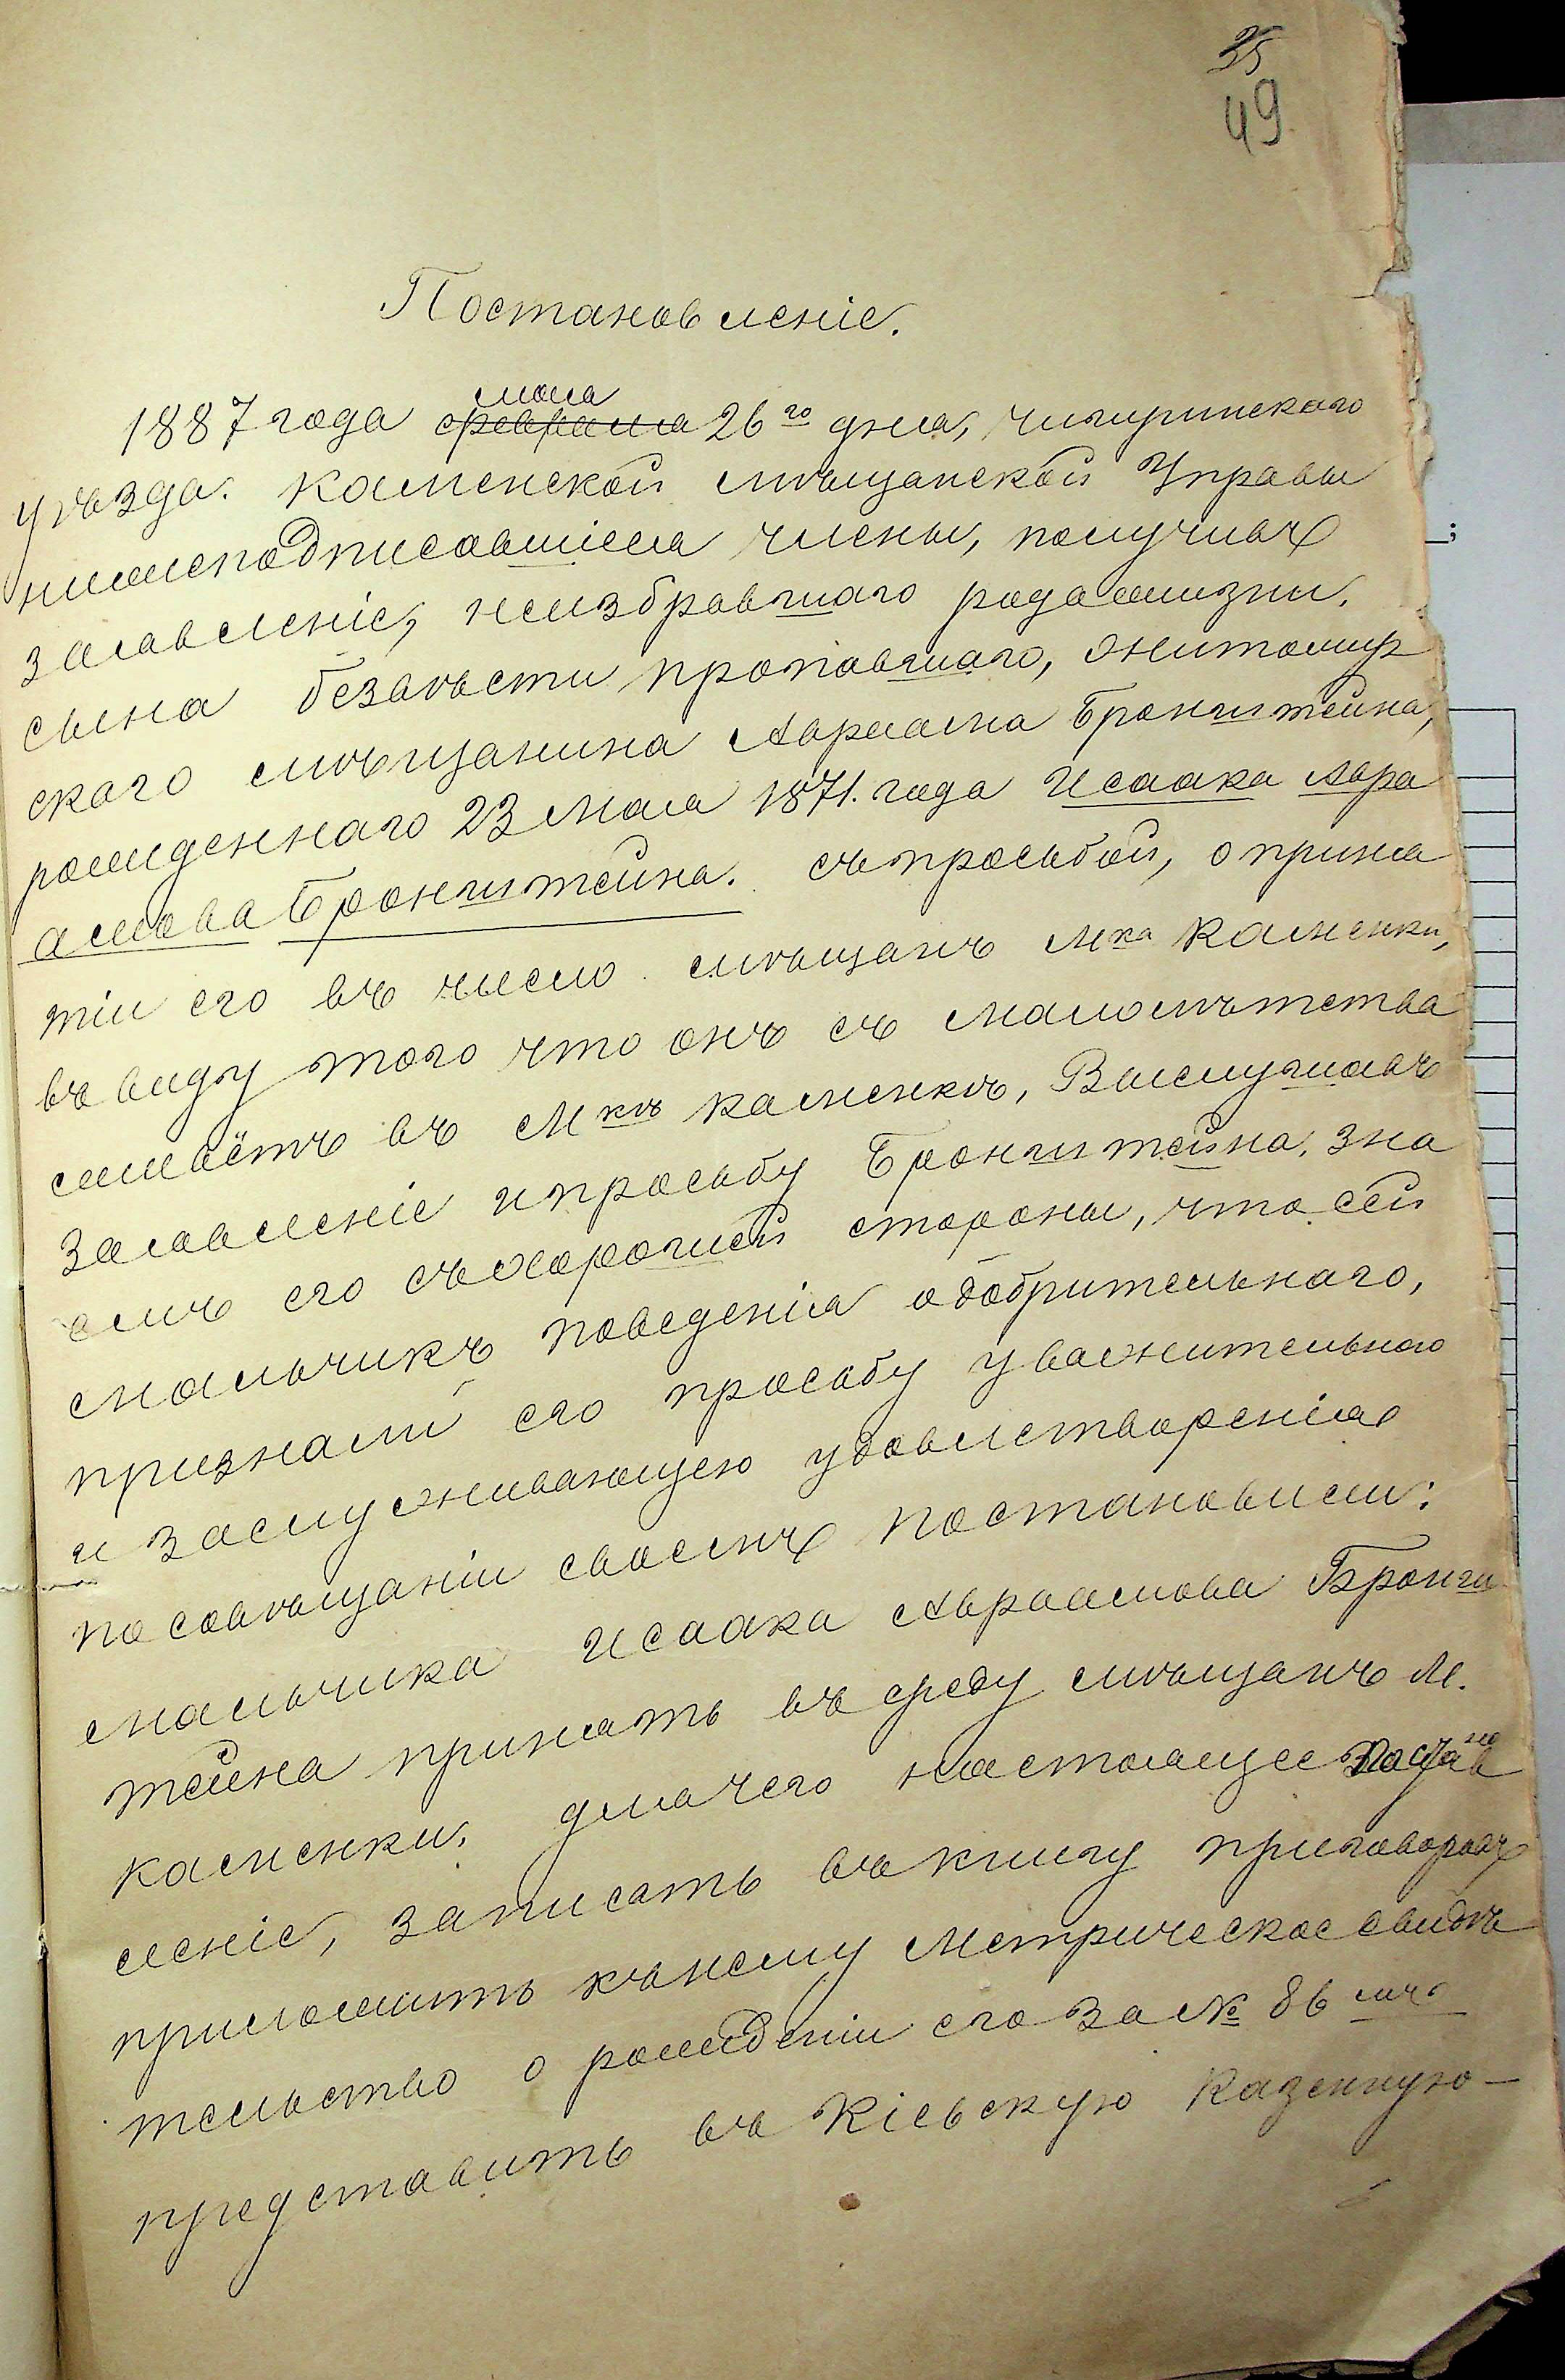 35
49
Постановленіе.
мая
1887 года февраля 26го дня, чигиринскаго
уѣзда. Каменской мѣщанской Управы
нижеподписавшіеся члены, получивъ
заявленіе, неизбравшаго родажизни,
сына безвѣсти пропавшаго, житомир
скаго мѣщанина Авраама Бронштейна,
рожденнаго 23 Мая 1871. года Исаака Авра
амова Бронштейна. съпросьбой, о приня
тіи его въ число мѣщанъ Мка Каменки,
въ виду того что онъ съ малолѣтства
живётъ въ Мкѣ Каменкѣ, Выслушавъ
заявленіе ипросьбу Бронштейна, зна
емъ его съхорошей стороны, что сей
мальчикъ поведенія одобрительнаго,
признали его просьбу уважительною
и заслуживающею удовлетворенія
по совѣщаніи своемъ постановили:
мальчика Исаака Авраамова Бронш
тейна принять въ среду мѣщанъ М.
Каменки, длячего настоящее Постанов
леніе, записать въкнигу приговоровъ
приложить кънему Метрическое свидѣ
тельство о рожденіи его за № 86
представить въ Кіевскую Казенную—
;